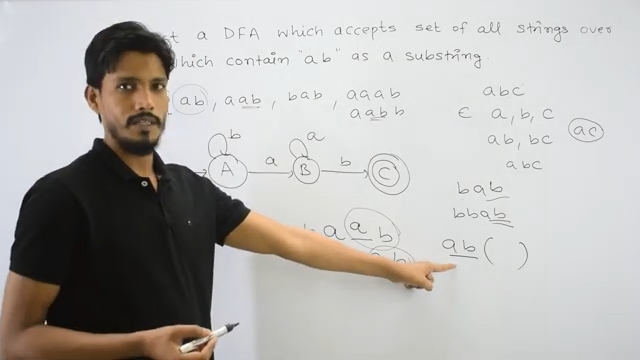 a DFA which accepts set of all strings over
which contain "ab" as a substring.
ab, aab, bab, aaab
aabb
abc
ϵ a, b, c
ac
ab, bc
abc
b
a
A
a
B
b
C
bab
bbab
a a b
ab
ab ( )